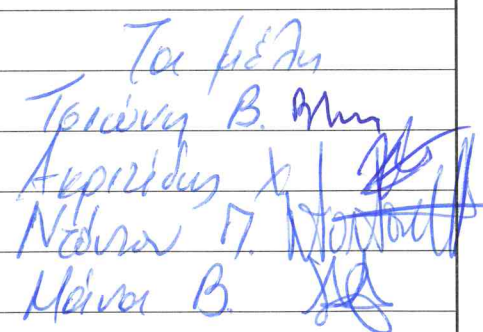 Τα μέλη
Τσιώνη Β.
Ακριτίδης Χ
Ντόντου Π.
Μάινα Β.